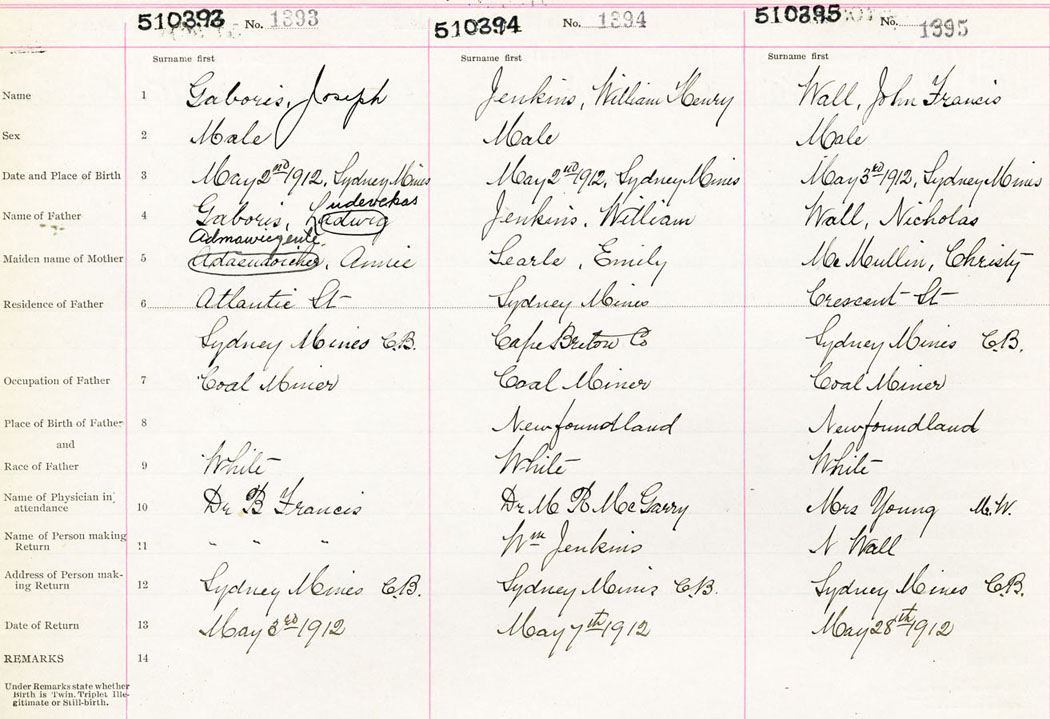 510393 No. 1393 510394 No. 1394 510395 No. 1395
Surname first Surname first Surname first
Name 1 Gaboris, Joseph Jenkins, William Henry Wall, John Francis
Sex 2 Male Male Male
Date and Place of Birth 3 May 2nd 1912, Sydney Mines May 2nd 1912, Sydney Mines May 3rd 1912, Sydney Mines
udevekas
Name of Father 4 Gaboris, Ludwig Jenkins, William Wall, Nicholas
Maiden name of Mother 5 Annie Searle, Emily McMullin, Christy
Residence of Father 6 Atlantic St Sydney Mines Crescent St
Sydney Mines C.B. Cape Breton Co Sydney Mines C.B.
Occupation of Father 7 Coal Miner Coal Miner Coal Miner
Place of Birth of Father 8 Newfoundland Newfoundland
and
Race of Father 9 White White White
Name of Physician in attendance 10 Dr B Francis Dr M R McGarry Mrs Young M.W.
Name of Person making Return 11 " " " Wm Jenkins N Wall
Address of Person making Return 12 Sydney Mines C.B. Sydney Mines C.B. Sydney Mines C.B.
Date of Return 13 May 3rd 1912 May 7th 1912 May 28th 1912
REMARKS 14
Under Remarks state whether
Birth is Twin, Triplet Ille-
gitimate or Still-birth.